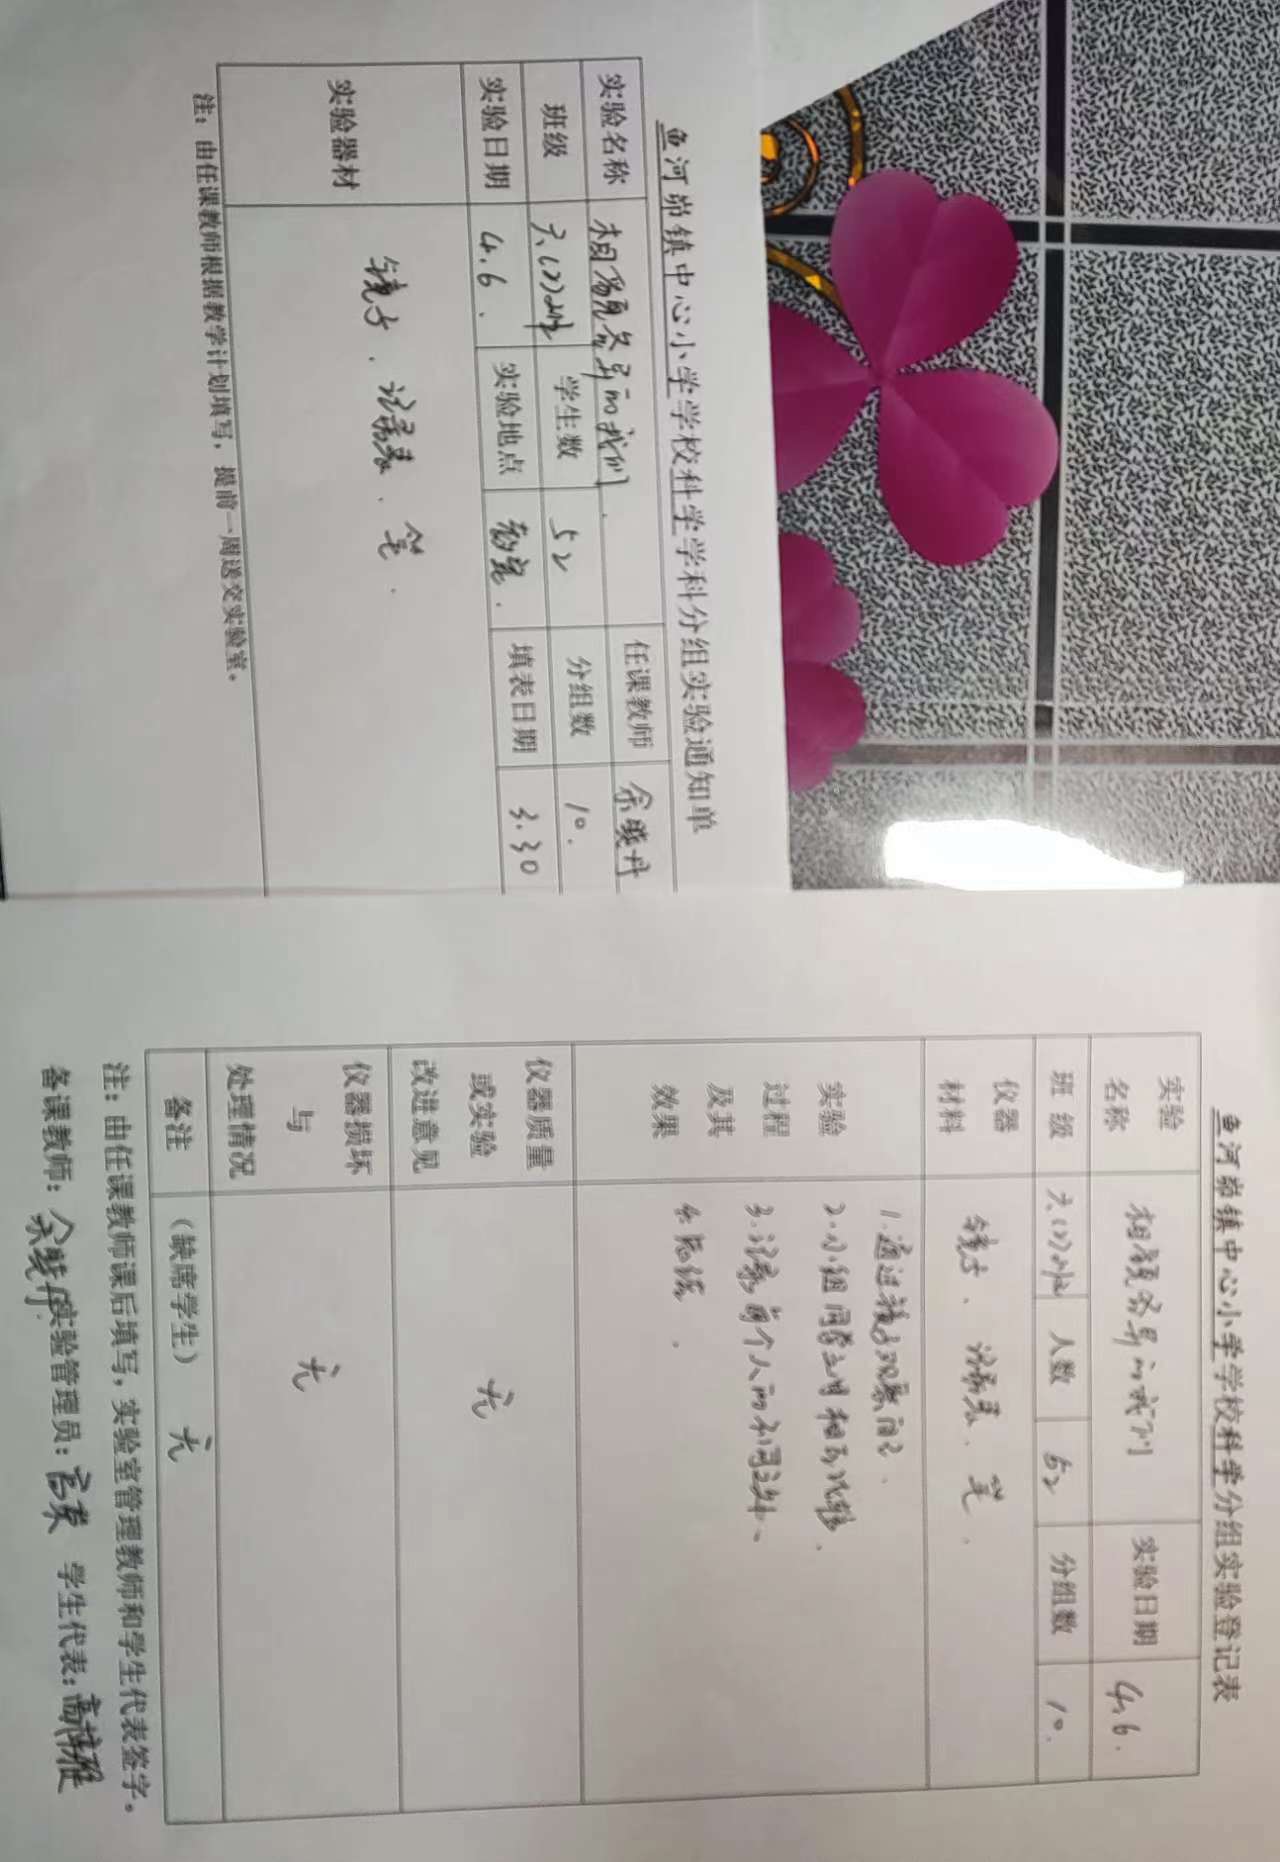 鱼河峁镇中心小学学校科学学科分组实验通知单
实验名称 相貌各异的我们. 任课教师
班级 六.(2)班 学生数 52 分组数 10.
实验日期 4.6. 实验地点 教室. 填表日期 3.30
实验器材 镜子、记录表、笔.
注：由任课教师根据教学计划填写，提前一周送交实验室。
鱼河峁镇中心小学学校科学分组实验登记表
实验名称 相貌各异的我们 实验日期 4.6.
班级 六.(2)班 人数 52 分组数 10.
仪器材料 镜子、记录表、笔.
实验过程及其效果 1.通过镜子观察自己.
2.小组同学之间相互比较.
3.记录每个人的不同之处.
4.总结.
仪器质量或实验改进意见 无
仪器损坏与处理情况 无
备注 （缺席学生） 无
注：由任课教师课后填写，实验室管理教师和学生代表签字。
备课教师： 实验管理员： 学生代表：